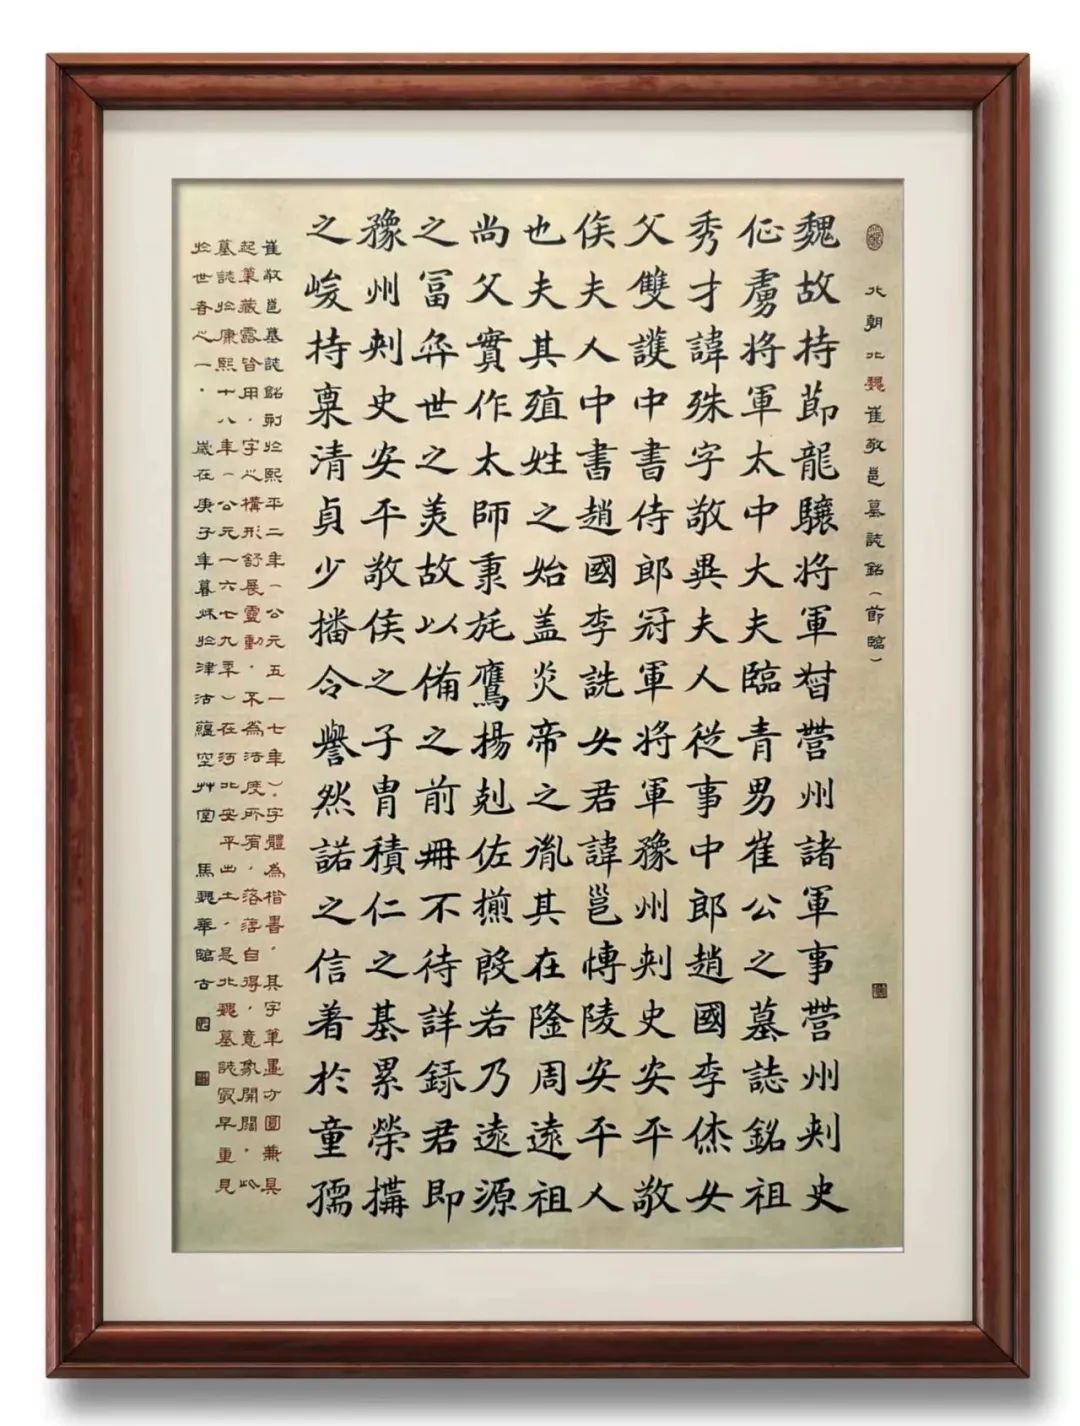 北朝北魏崔敬邕墓誌銘（節臨）
魏故持節龍驤將軍督營州諸軍事營州刺史
征虜將軍太中大夫臨青男崔公之墓誌銘祖
秀才諱殊字敬異夫人從事中郎趙國李休女
父雙護中書侍郎冠軍將軍豫州刺史安平敬
侯夫人中書趙國李詵女君諱邕博陵安平人
也夫其殖姓之始蓋炎帝之胤其在隆周遠祖
尚父實作太師秉旄鷹揚剋佐揃殷若乃遠源
之富弈世之美故以備之前冊不待詳録君即
豫州刺史安平敬侯之子胄積仁之基累榮搆
之峻持稟清貞少播令譽然諾之信著於童孺
崔敬邕墓誌銘刻於熙平二年（公元五一七年）．字體為楷書，其字筆畫方圓兼具
起筆藏露皆用，字之構形舒展靈動，不為法度所宥，落落自得，意象開闊，此
墓誌於康熙十八年（公元一六七九年）在河北安平出土，是北魏墓誌最早重見
於世者之一．歲在庚子年暮秋於津沽蘊空艸堂 馬魏華臨古